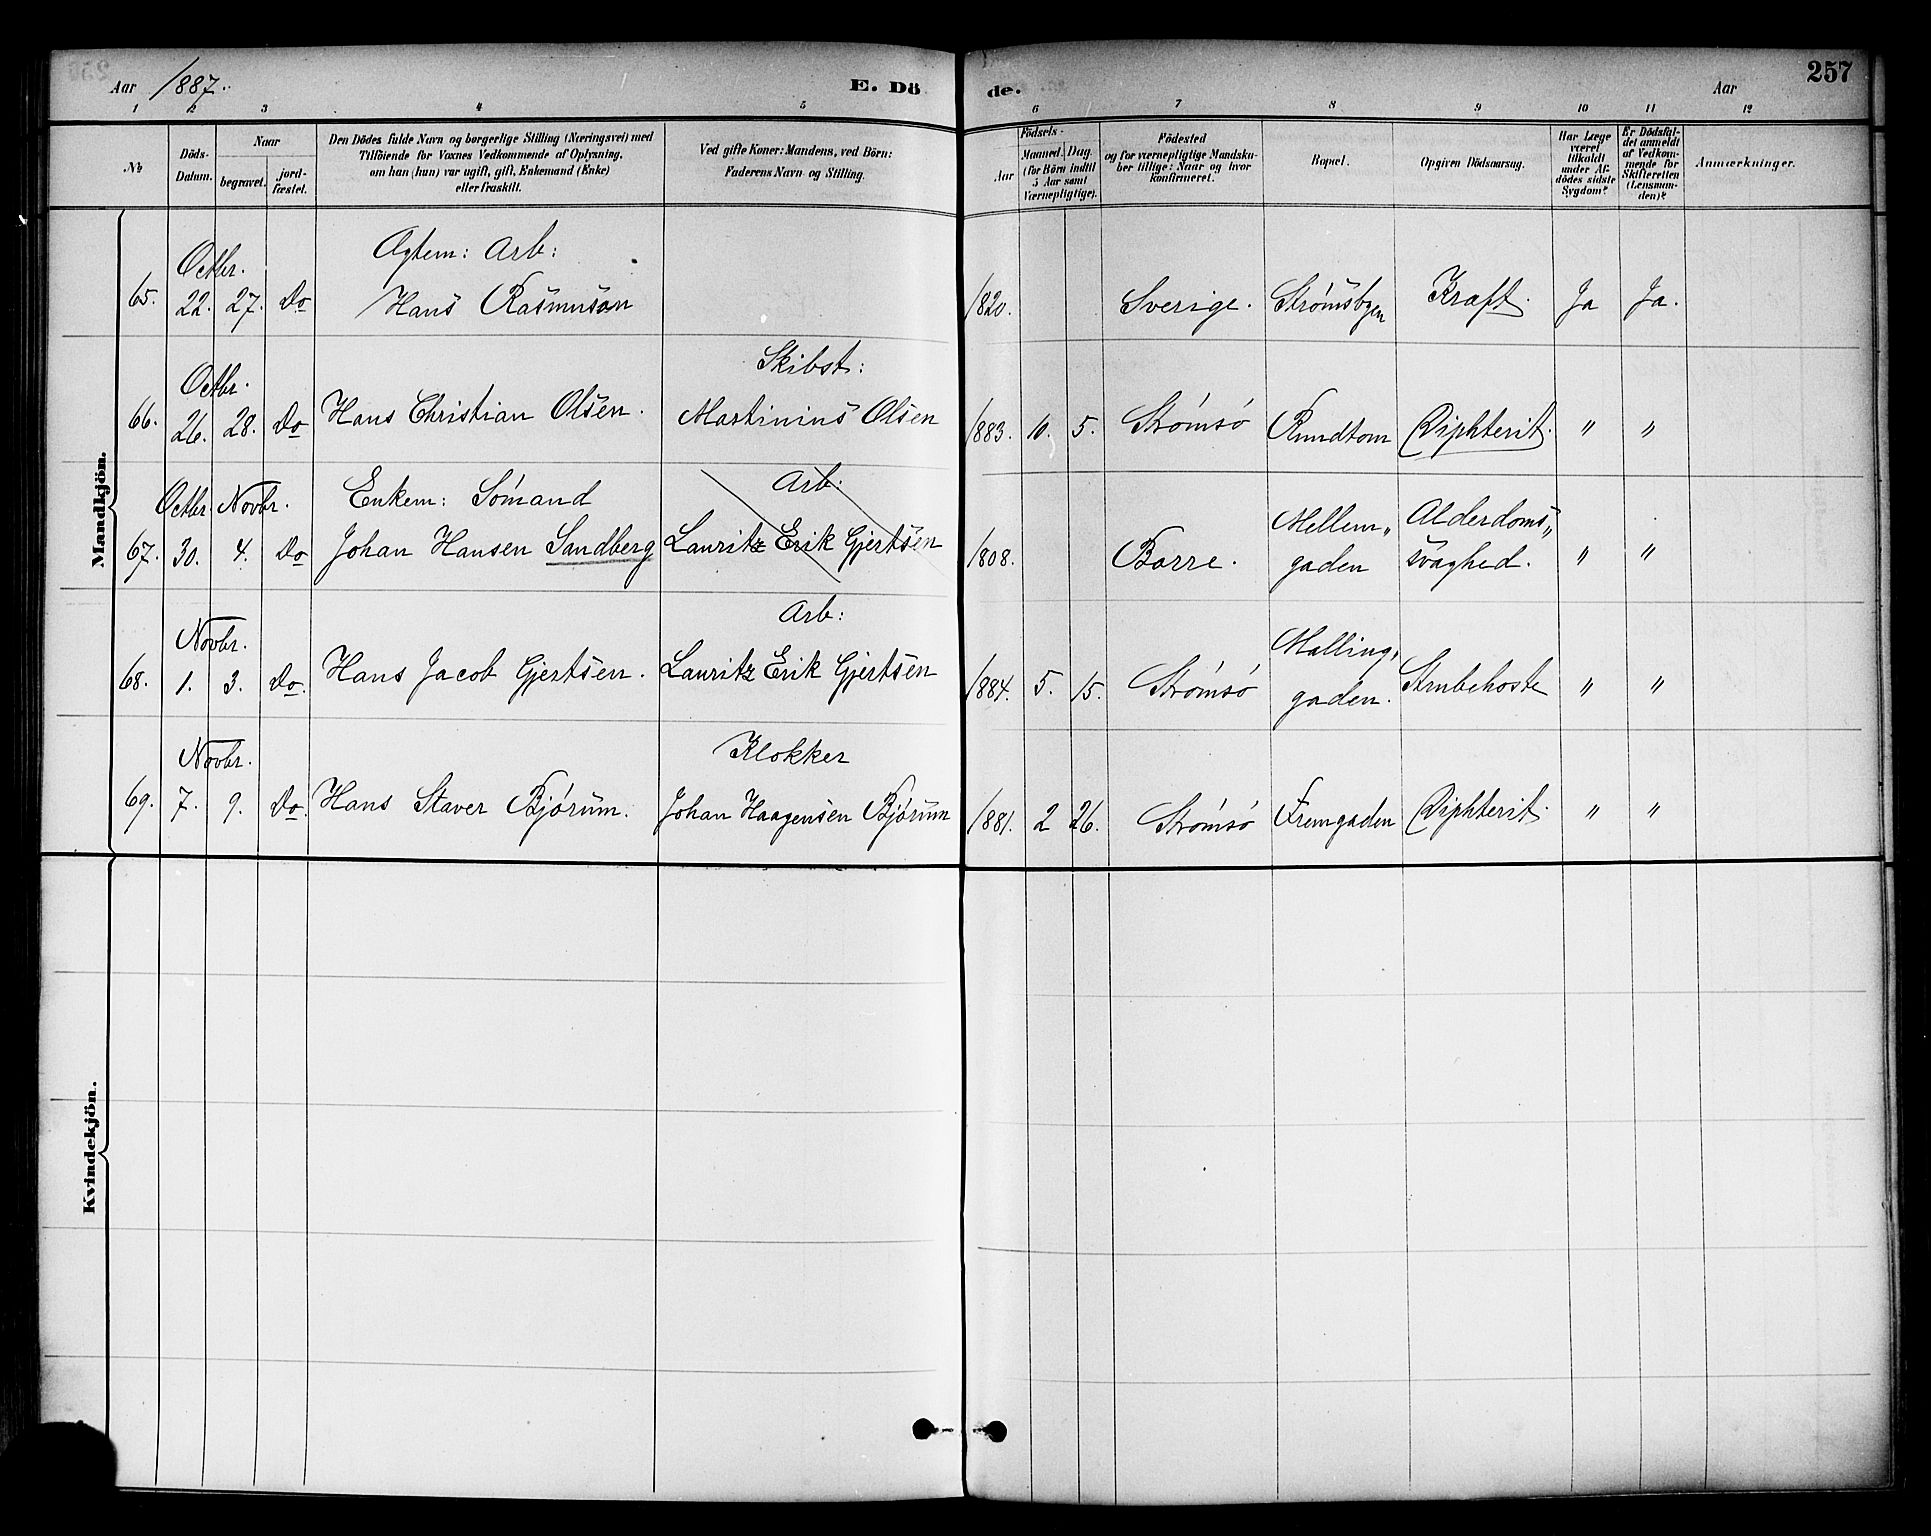 Aar 1887.
E. Dö
de.
Aar
257
1 2 3 4 5 6 7 8 9 10 11 12
No
Döds-Datum.
Naar
begravet.
jord-fæstet.
Den Dödes fulde Navn og borgerlige Stilling (Næringsvei) med
Tilföiende for Voxnes Vedkommende af Oplysning,
om han (hun) var ugift, gift, Enkemand (Enke)
eller fraskilt.
Ved gifte Koner: Mandens, ved Börn:
Faderens Navn og Stilling.
Födsels-
Aar
Maaned. Dag
(for Börn indtil
5 Aar samt
Værnepligtige).
Födested
og for værnepligtige Mandsku-
ber tillige: Naar og hvor
konfirmeret.
Bopæl.
Opgiven Dödsaarsag.
Har Læge
været
tilkaldt
under Af-
dödes sidste
Sygdom?
Er Dödsfal-
det anmeldt
af Vedkom-
mende for
Skifteretten
(Lensman-
den)?
Anmærkninger.
Mandkjön.
Octbr. Ægtem: Arb:
65. 22. 27. Do Hans Rasmuson 1820. Sverige. Strømsbyen Kræft. Ja Ja.
Octbr. Skibst:
66. 26. 28. Do Hans Christian Olsen. Martinius Olsen 1883. 10. 5. Strømsø Rundtom Diphterit. " "
Octbr. Novbr. Enkem: Sømand Arb: Mellem„ Alderdoms„
67. 30. 4. Do Johan Hansen Sandberg Lauritz Erik Gjertsen 1808. Borre. gaden svaghed. " "
Novbr. Arb: Malling„
68. 1. 3. Do. Hans Jacob Gjertsen. Lauritz Erik Gjertsen 1884. 5. 15. Strømsø gaden. Strubehoste " "
Novbr. Klokker
69. 7. 9. Do. Hans Staver Bjørum. Johan Haagensen Bjørum 1881. 2 26. Strømsø Fremgaden Diphterit. " "
Kvindekjön.